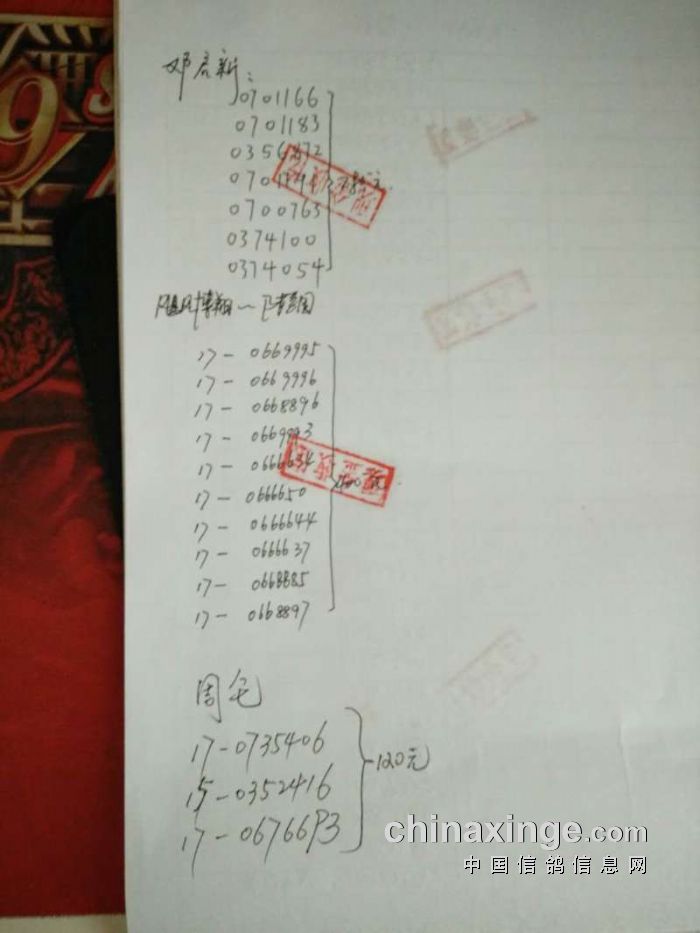 邓启新:
0701166
0701183
0356872
070
0700763
0374100
0374054
17-0669995
17-0669996
17-0668896
17-0669993
17-0666634
17-0666650
17-0666644
17-0666637
17-0668885
17-0668897
周宅
17-0735406
15-0352416
17-0676693
120元
chinaxinge.com
中国信鸽信息网